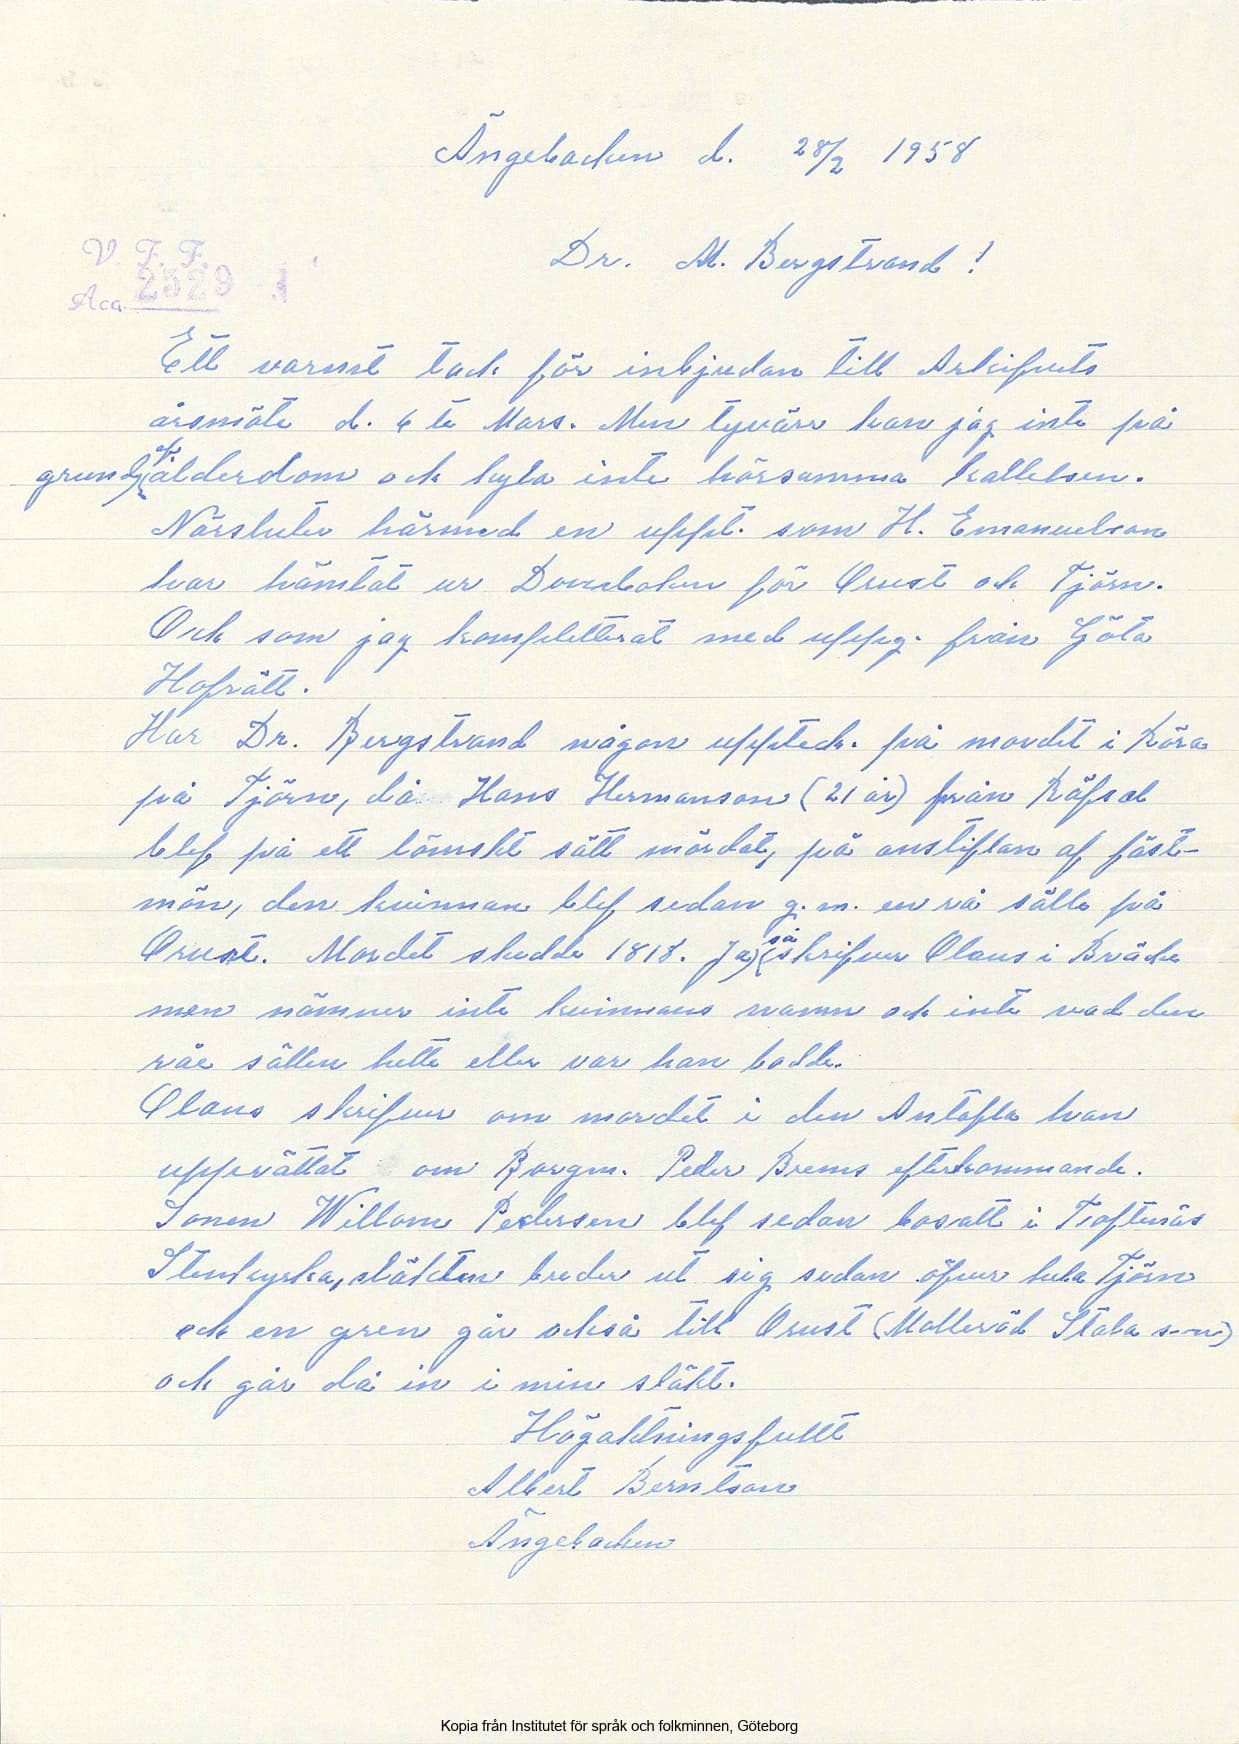 Ängebacken d. 28/2 1958
Dr. M. Bergstrand!
V. F. F.
Acc. 2329 1
Ett varmt tack för inbjudan till Arkifvets
årsmöte d. 6 te Mars. Men tyvärr kan jag inte på
grund af ålderdom och kyla inte hörsamma kallelsen.
Närsluter härmed en uppt. som H. Emanuelson
har hämtat ur Domboken för Orust och Tjörn.
Och som jag kompletterat med uppg. från Göta
Hofrätt.
Har Dr. Bergstrand någon uppteck. på mordet i Röra
på Tjörn, då Hans Hermanson (21 år) från Räfsal
blef på ett lömskt sätt mördat, på anstiftan af fäst-
mön, den kvinnan blef sedan g. m. en rå sälle på
Orust. Mordet skedde 1818. Ja, så skrifver Olaus i Bräcke
men nämner inte kvinnans namn och inte vad den
råe sällen hette eller var han bodde.
Olaus skrifver om mordet i den Antafla han
upprättat om Borgm. Peder Brems efterkommande.
Sonen Willom Pedersen blef sedan bosatt i Toftenäs
Stenkyrka, släkten breder ut sig sedan öfver hela Tjörn
och en gren går också till Orust (Malleröd Stala s-n)
och går då in i min släkt.
Högaktningsfullt
Albert Berntson
Ängebacken
Kopia från Institutet för språk och folkminnen, Göteborg